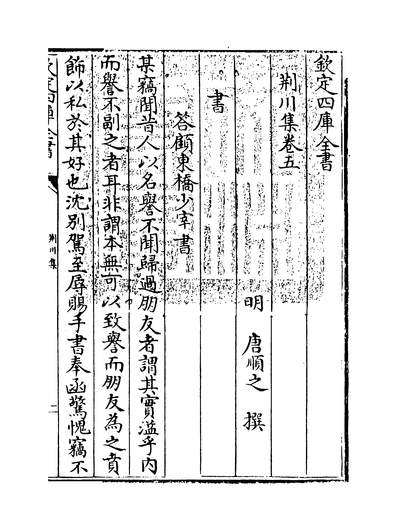 欽定四庫全書
荆川集卷五
明 唐順之 撰
書
答顧東橋少宰書
某竊聞昔人以名譽不聞歸過朋友者謂其實溢乎内
而譽不副之者耳非謂本無可以致譽而朋友為之賁
飾以私於其好也沈别駕至辱賜手書奉函驚愧竊不
荆川集